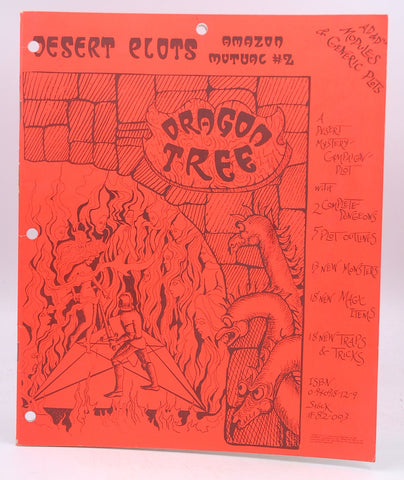 DESERT PLOTS
AMAZON
MUTUAL #2
AD&D™
MODULES
& GENERIC PLOTS
DRAGON
TREE
A
DESERT
MYSTERY
CAMPAIGN
PLOT
WITH
2 COMPLETE
DUNGEONS
5 PLOT OUTLINES
13 NEW MONSTERS
18 NEW MAGIC
ITEMS
18 NEW TRAPS
& TRICKS
ISBN
STOCK
#82-093